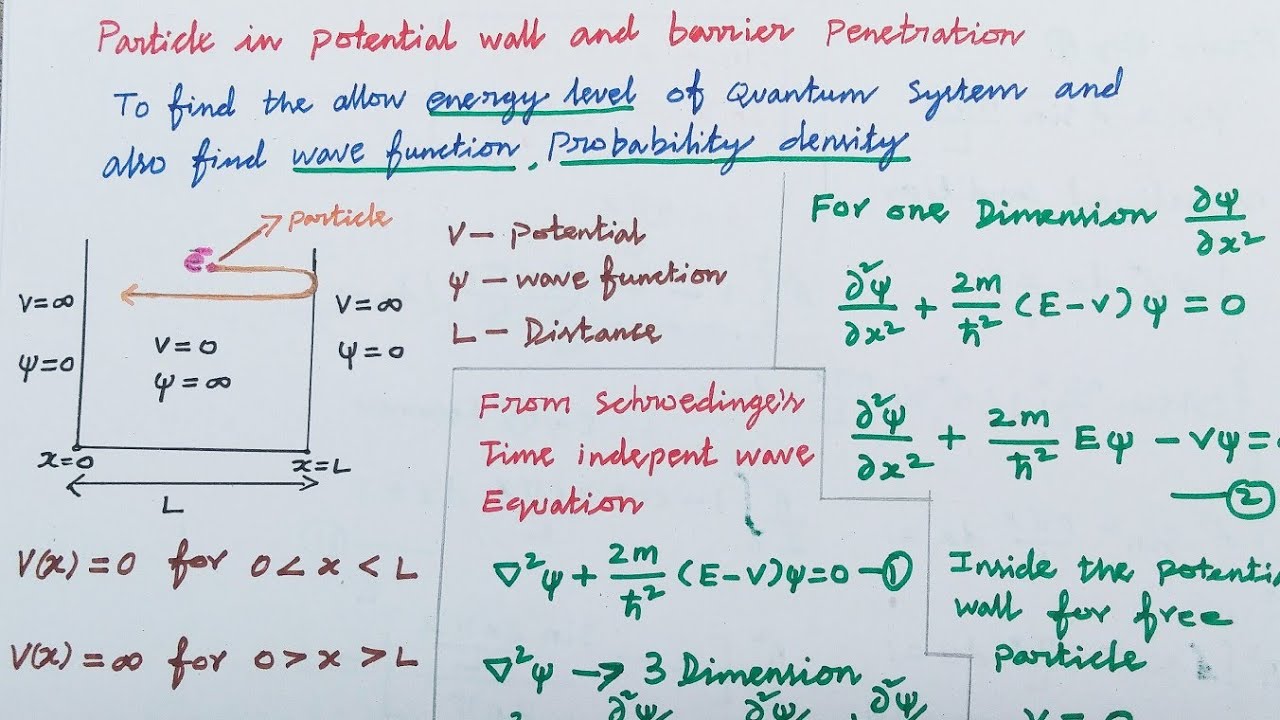 Particle in potential wall and barrier Penetration
To find the allow energy level of Quantum System and
also find wave function, Probability density
particle
V=∞
ψ=0
V=0
ψ=∞
V=∞
ψ=0
x=0
x=L
L
V(x)=0 for 0<x<L
V(x)=∞ for 0>x>L
V – Potential
ψ – wave function
L – Distance
From Schroedinge's
Time indepent wave
Equation
∇²ψ + 2m/ħ² (E-V)ψ=0 —①
∇²ψ → 3 Dimension
∂²ψ ∂²ψ ∂²ψ
For one Dimension ∂ψ/∂x²
∂²ψ/∂x² + 2m/ħ² (E-V)ψ = 0
∂²ψ/∂x² + 2m/ħ² Eψ - Vψ =
—②
Inside the potenti
wall for free
particle
V = 0